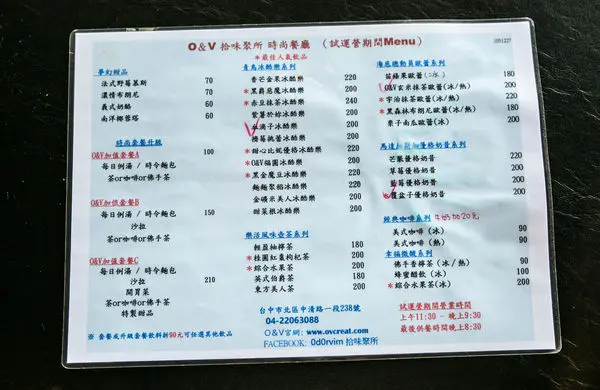 O&V 拾味聚所 時尚餐廳 （試運營期間Menu）
1051227
＊最佳人氣飲品
夢幻甜品
法式野莓慕斯 70
濃情布朗尼 70
義式奶酪 60
南洋椰蓉塔 60
時尚套餐升級
O&V加值套餐A 100
每日例湯 / 時令麵包
茶or咖啡or佛手茶
O&V加值套餐B 150
每日例湯 / 時令麵包
沙拉
茶or咖啡or佛手茶
O&V加值套餐C 210
每日例湯 / 時令麵包
沙拉
開胃菜
茶or咖啡or佛手茶
特製甜品
※ 套餐或升級套餐飲料折90元可任選其他飲品
青鳥冰酷樂系列
香芒金果冰酷樂 200
＊黑爵尼魔冰酷樂 200
＊赤豆抹茶冰酷樂 200
紫薯於妳冰酷樂 200
血滴子冰酷樂 200
櫻莓桃薔冰酷樂 200
＊甜心比妮優格冰酷樂 220
＊O&V福圓冰酷樂 200
＊黑金魔豆冰酷樂 200
麵麵聚稻冰酷樂 220
金礦米美人冰酷樂 200
甜菜根冰酷樂 200
樂活風味壺茶系列
輕盈柚檸茶 180
＊桂圓紅棗枸杞茶 200
＊綜合水果茶 200
英式伯爵茶 180
東方美人茶 200
海底總動員歐蕾系列
苗蘋果歐蕾(冰) 180
O&V玄米抹茶歐蕾(冰/熱) 200
＊宇治抹茶歐蕾(冰/熱) 200
＊黑森林布朗尼歐蕾(冰/熱) 200
栗子南瓜歐蕾(冰) 200
馬達加斯加優格奶昔系列
芒果優格奶昔 220
草莓優格奶昔 220
藍莓優格奶昔 220
覆盆子優格奶昔 220
經典咖啡系列 牛奶加20元
美式咖啡 (冰) 90
美式咖啡 (熱) 90
幸福微酸系列
佛手香檸茶(冰/熱) 90
蜂蜜醋飲 (冰) 90
綜合水果茶(冰) 90
台中市北區中清路一段238號
04-22063088
O&V官網: www.ovcreat.com
FACEBOOK: 0d0rvim 拾味聚所
試運營期間營業時間
上午11:30 - 晚上9:30
最後供餐時間晚上8:30